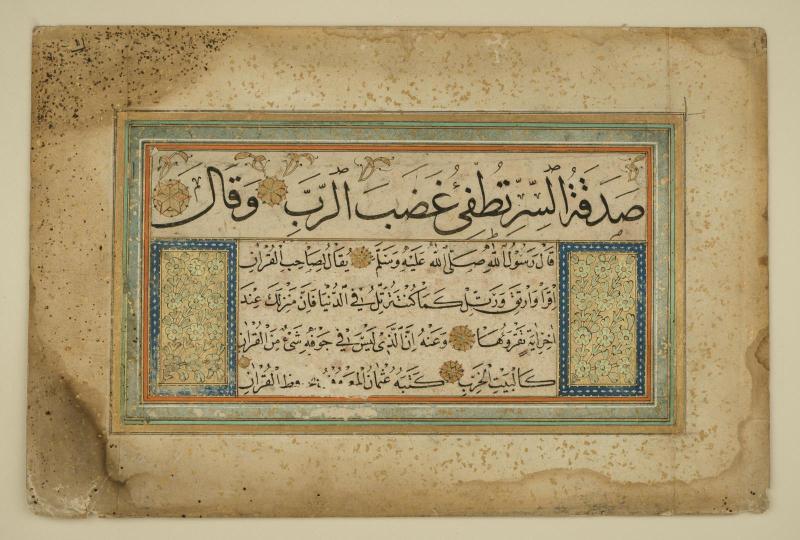 صَدَقَةُ السِّرِّ تُطْفِئُ غَضَبَ الرَّبِّ وَقَالَ
قَالَ رَسُولُ اللّٰهِ صَلَّى اللّٰهُ عَلَيْهِ وَسَلَّمَ يُقَالُ لِصَاحِبِ الْقُرْاٰنِ
اِقْرَأْ وَارْتَقِ وَرَتِّلْ كَمَا كُنْتَ تُرَتِّلُ فِي الدُّنْيَا فَاِنَّ مَنْزِلَكَ عِنْدَ
اٰخِرِ اٰيَةٍ تَقْرَؤُهَا وَعَنْهُ اِنَّ الَّذِي لَيْسَ فِي جَوْفِهِ شَيْءٌ مِنَ الْقُرْاٰنِ
كَالْبَيْتِ الْخَرِبِ كَتَبَهُ عُثْمَانُ الْقُرْاٰنِ